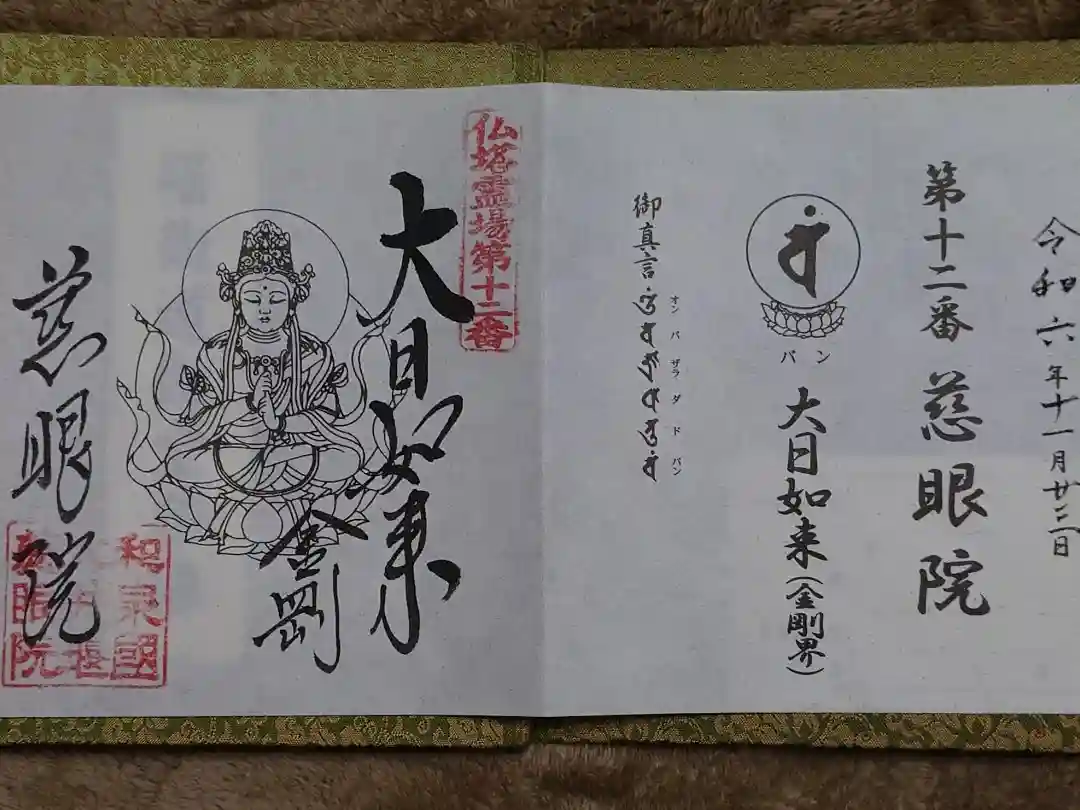 令和六年十一月廿二日
第十二番 慈眼院
バン
大日如来(金剛界)
オン バ ザラ ダ ド バン
御真言
仏塔霊場第十二番
大日如来
金剛
慈眼院
和泉國
慈眼院